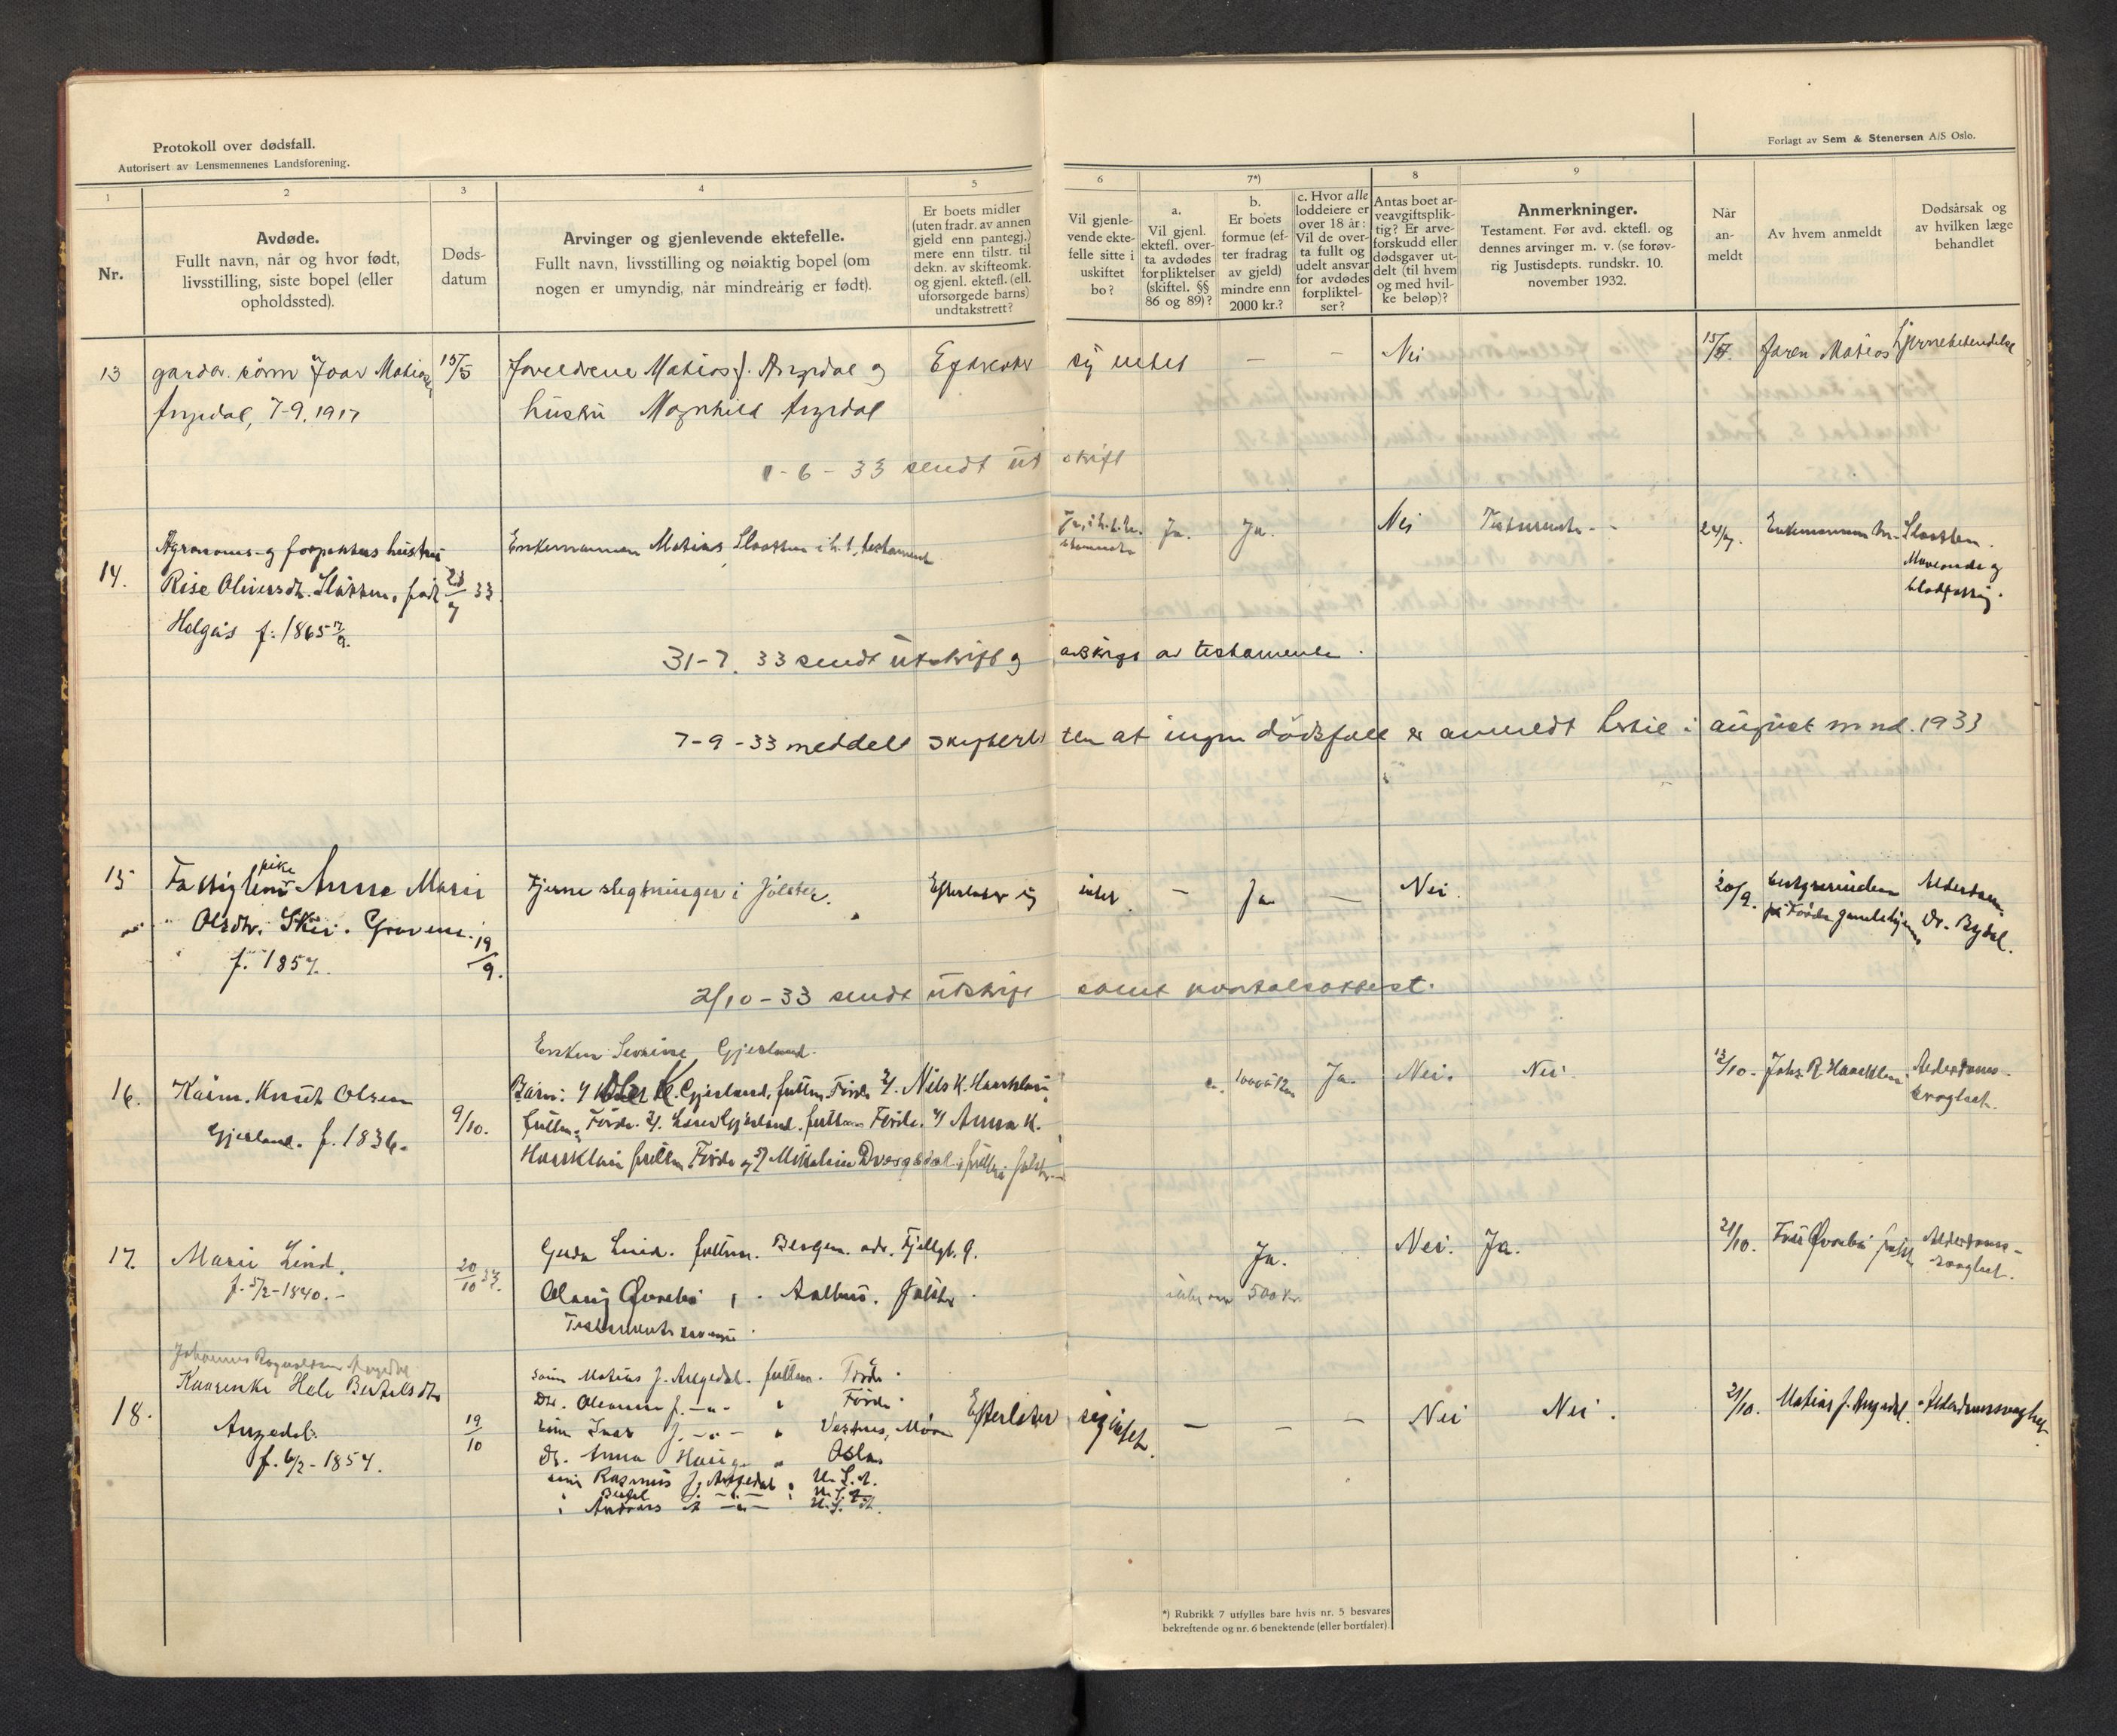 Protokoll over dødsfall.
Autorisert av Lensmennenes Landsforening.
Forlagt av Sem & Stenersen A/S Oslo.
1 2 3 4 5 6 7*) 8 9
Nr.
Avdøde.
Fullt navn, når og hvor født,
livsstilling, siste bopel (eller
opholdssted).
Døds-
datum
Arvinger og gjenlevende ektefelle.
Fullt navn, livsstilling og nøiaktig bopel (om
nogen er umyndig, når mindreårig er født).
Er boets midler
(uten fradr. av annen
gjeld enn pantegj.)
mere enn tilstr. til
dekn. av skifteomk.
og gjenl. ektefl. (ell.
uforsørgede barns)
undtakstrett?
Vil gjenle-
vende ekte-
felle sitte i
uskiftet
bo?
a.
Vil gjenl.
ektefl. over-
ta avdødes
forpliktelser
(skiftel. §§
86 og 89)?
b.
Er boets
formue (ef-
ter fradrag
av gjeld)
mindre enn
2000 kr.?
c. Hvor alle
loddeiere er
over 18 år:
Vil de over-
ta fullt og
udelt ansvar
for avdødes
forpliktel-
ser?
Antas boet ar-
veavgiftsplik-
tig? Er arve-
forskudd eller
dødsgaver ut-
delt (til hvem
og med hvil-
ke beløp)?
Anmerkninger.
Testament. Før avd. ektefl. og
dennes arvinger m. v. (se forøv-
rig Justisdepts. rundskr. 10.
november 1932.
Når
an-
meldt
Av hvem anmeldt
Dødsårsak og
av hvilken læge
behandlet
13 gardbr. sønn Ivar Matias 15/5 foreldrene Matias J. Angedal og Efterlater sig intet — — Nei 15/5. faren Matias hjernebetendelse
Angedal, 7-9. 1917 hustru Magnhild Angedal
1-6-33 sendt utskrift
14. Agronoms og hustru Enkemannen Matias Slaatten i h.t. testament Ja, i h.t. te- Ja. Ja. Nei Testamente - - 24/7. Enkemannen M. Slaatten.
stamente
Rise Oliversdtr. Slåtten, født 23/7 33. Mavesår og
Helgås f. 1865 blodfattig.
31-7. 33 sendt utskrift og avskrift av testamente.
7-9-33 meddelt skifteretten at ingen dødsfall er anmeldt hertil i august mnd. 1933
15 Fattiglem pike Anna Marie Fjerne slegtninger i Jølster. Efterlater sig intet. — Ja — Nei. 20/9. bestyrerinden Alderdom.
Olsdtr. Skei. Grovene. 19/9. på Førde gamlehjem Dr. Rydal.
f. 1857.
2/10-33 sendt utskrift samt kvartalsattest.
Enken Sevrine Gjerland.
16. Kårm. Knut Olsen 9/10. Barn: 1/ K. Gjerland, fullm. Førde 2/. Nils K. Haarklau 10000 Kr Ja. Nei. Nei. 12/10. Johs. R. Haarklau. Alderdoms-
Gjerland. f. 1836. fullm. Førde. 3/. Gjerland. fullm. Førde. 4/ Anna K. svaghet.
Haarklau fullm Førde og 5/ Mikaline Dvergsdal, fullm. Jølster.
17. Marie Lind. 20/10 33. Gerda Lind. fullm. Bergen. adr. Fjellgt. 9. Ja. Nei. Ja. 21/10. Fru Øvrebø Jølst. Alderdoms-
f. 5/2-1840. - Olaug Øvrebø, - Aalhus. Jølster. ikke over 500 kr. svaghet.
Testamentsarvinger.
Johannes Rognaldsen Angedal
18. Kaarenke Hele Bertelsdtr 19/10 sønn Matias J. Angedal. fullm. Førde. Efterlater sig intet. — — — Nei Nei. 21/10. Matias J. Angedal. Alderdomssvaghet.
Angedal. Dtr. Oleanna J. —"— " Førde.
f. 6/2-1854. sønn Ivar J. —"— " Vestnes, Møre
dtr. Anna Hauge " Oslo.
sønn Rasmus J. Angedal " U. S. A.
" Bertel J. —"— " U. S. A.
" Andreas —"— U. S. A.
*) Rubrikk 7 utfylles bare hvis nr. 5 besvares
bekreftende og nr. 6 benektende (eller bortfaler)